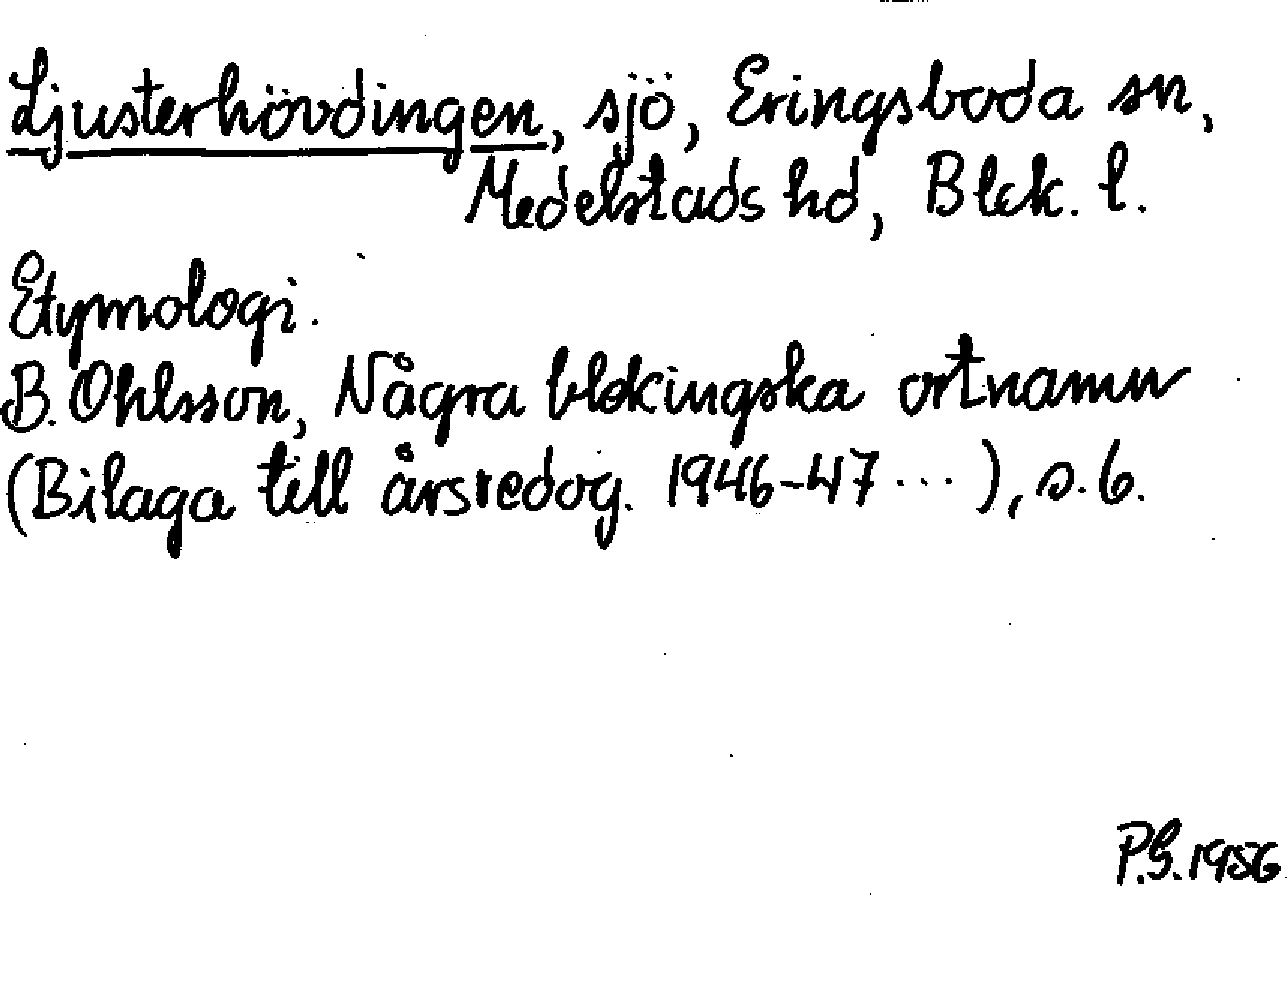 Ljusterhövdingen, sjö, Eringsboda sn,
Medelstads hd, Blek. l.
Etymologi.
B. Ohlsson, Några blekingska ortnamn
(Bilaga till årsredog. 1946-47 ...), s. 6.
P.G. 1956